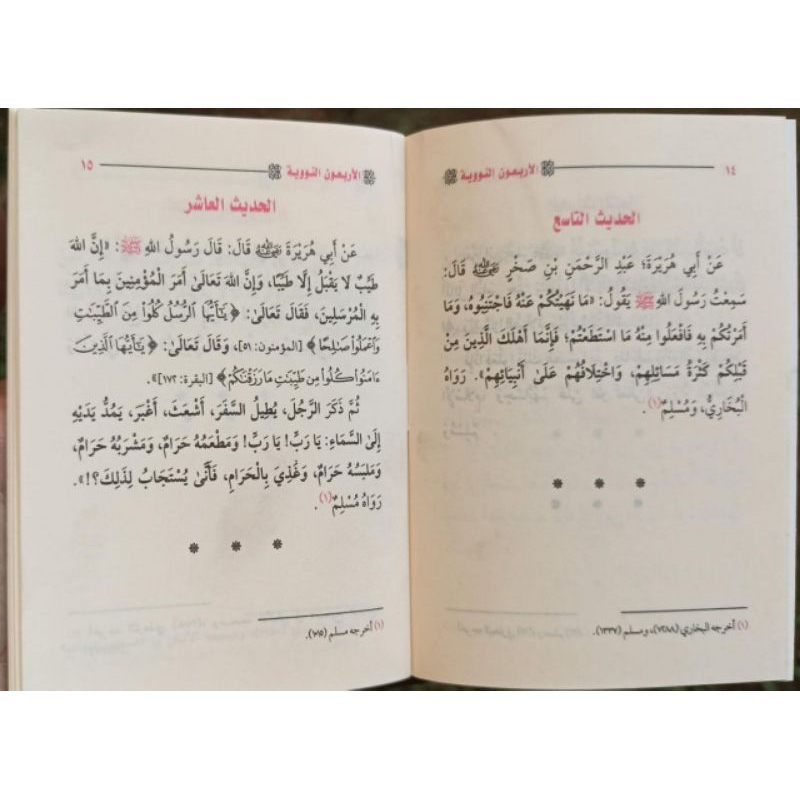 ١٤ الأربعون النووية
الحديث التاسع
عَنْ أَبِي هُرَيْرَةَ؛ عَبْدِ الرَّحْمَنِ بْنِ صَخْرٍ رضي الله عنه قَالَ:
سَمِعْتُ رَسُولَ اللهِ ﷺ يَقُولُ: «مَا نَهَيْتُكُمْ عَنْهُ فَاجْتَنِبُوهُ، وَمَا
أَمَرْتُكُمْ بِهِ فَافْعَلُوا مِنْهُ مَا اسْتَطَعْتُمْ؛ فَإِنَّمَا أَهْلَكَ الَّذِينَ مِنْ
قَبْلِكُمْ كَثْرَةُ مَسَائِلِهِمْ، وَاخْتِلَافُهُمْ عَلَىٰ أَنْبِيَائِهِمْ». رَوَاهُ
الْبُخَارِيُّ، وَمُسْلِمٌ(١).
(١) أخرجه البخاري (٧٢٨٨)، ومسلم (١٣٣٧).
الأربعون النووية ١٥
الحديث العاشر
عَنْ أَبِي هُرَيْرَةَ رضي الله عنه قَالَ: قَالَ رَسُولُ اللهِ ﷺ: «إِنَّ اللهَ
طَيِّبٌ لَا يَقْبَلُ إِلَّا طَيِّبًا، وَإِنَّ اللهَ تَعَالَىٰ أَمَرَ الْمُؤْمِنِينَ بِمَا أَمَرَ
بِهِ الْمُرْسَلِينَ، فَقَالَ تَعَالَىٰ: ﴿يَٰٓأَيُّهَا ٱلرُّسُلُ كُلُوا۟ مِنَ ٱلطَّيِّبَٰتِ
وَٱعْمَلُوا۟ صَٰلِحًا﴾ [المؤمنون: ٥١]، وَقَالَ تَعَالَىٰ: ﴿يَٰٓأَيُّهَا ٱلَّذِينَ
ءَامَنُوا۟ كُلُوا۟ مِن طَيِّبَٰتِ مَا رَزَقْنَٰكُمْ﴾ [البقرة: ١٧٢]».
ثُمَّ ذَكَرَ الرَّجُلَ، يُطِيلُ السَّفَرَ، أَشْعَثَ، أَغْبَرَ، يَمُدُّ يَدَيْهِ
إِلَىٰ السَّمَاءِ: يَا رَبِّ! يَا رَبِّ! وَمَطْعَمُهُ حَرَامٌ، وَمَشْرَبُهُ حَرَامٌ،
وَمَلْبَسُهُ حَرَامٌ، وَغُذِيَ بِالْحَرَامِ، فَأَنَّىٰ يُسْتَجَابُ لِذَلِكَ؟!».
رَوَاهُ مُسْلِمٌ(١).
(١) أخرجه مسلم (١٠١٥).